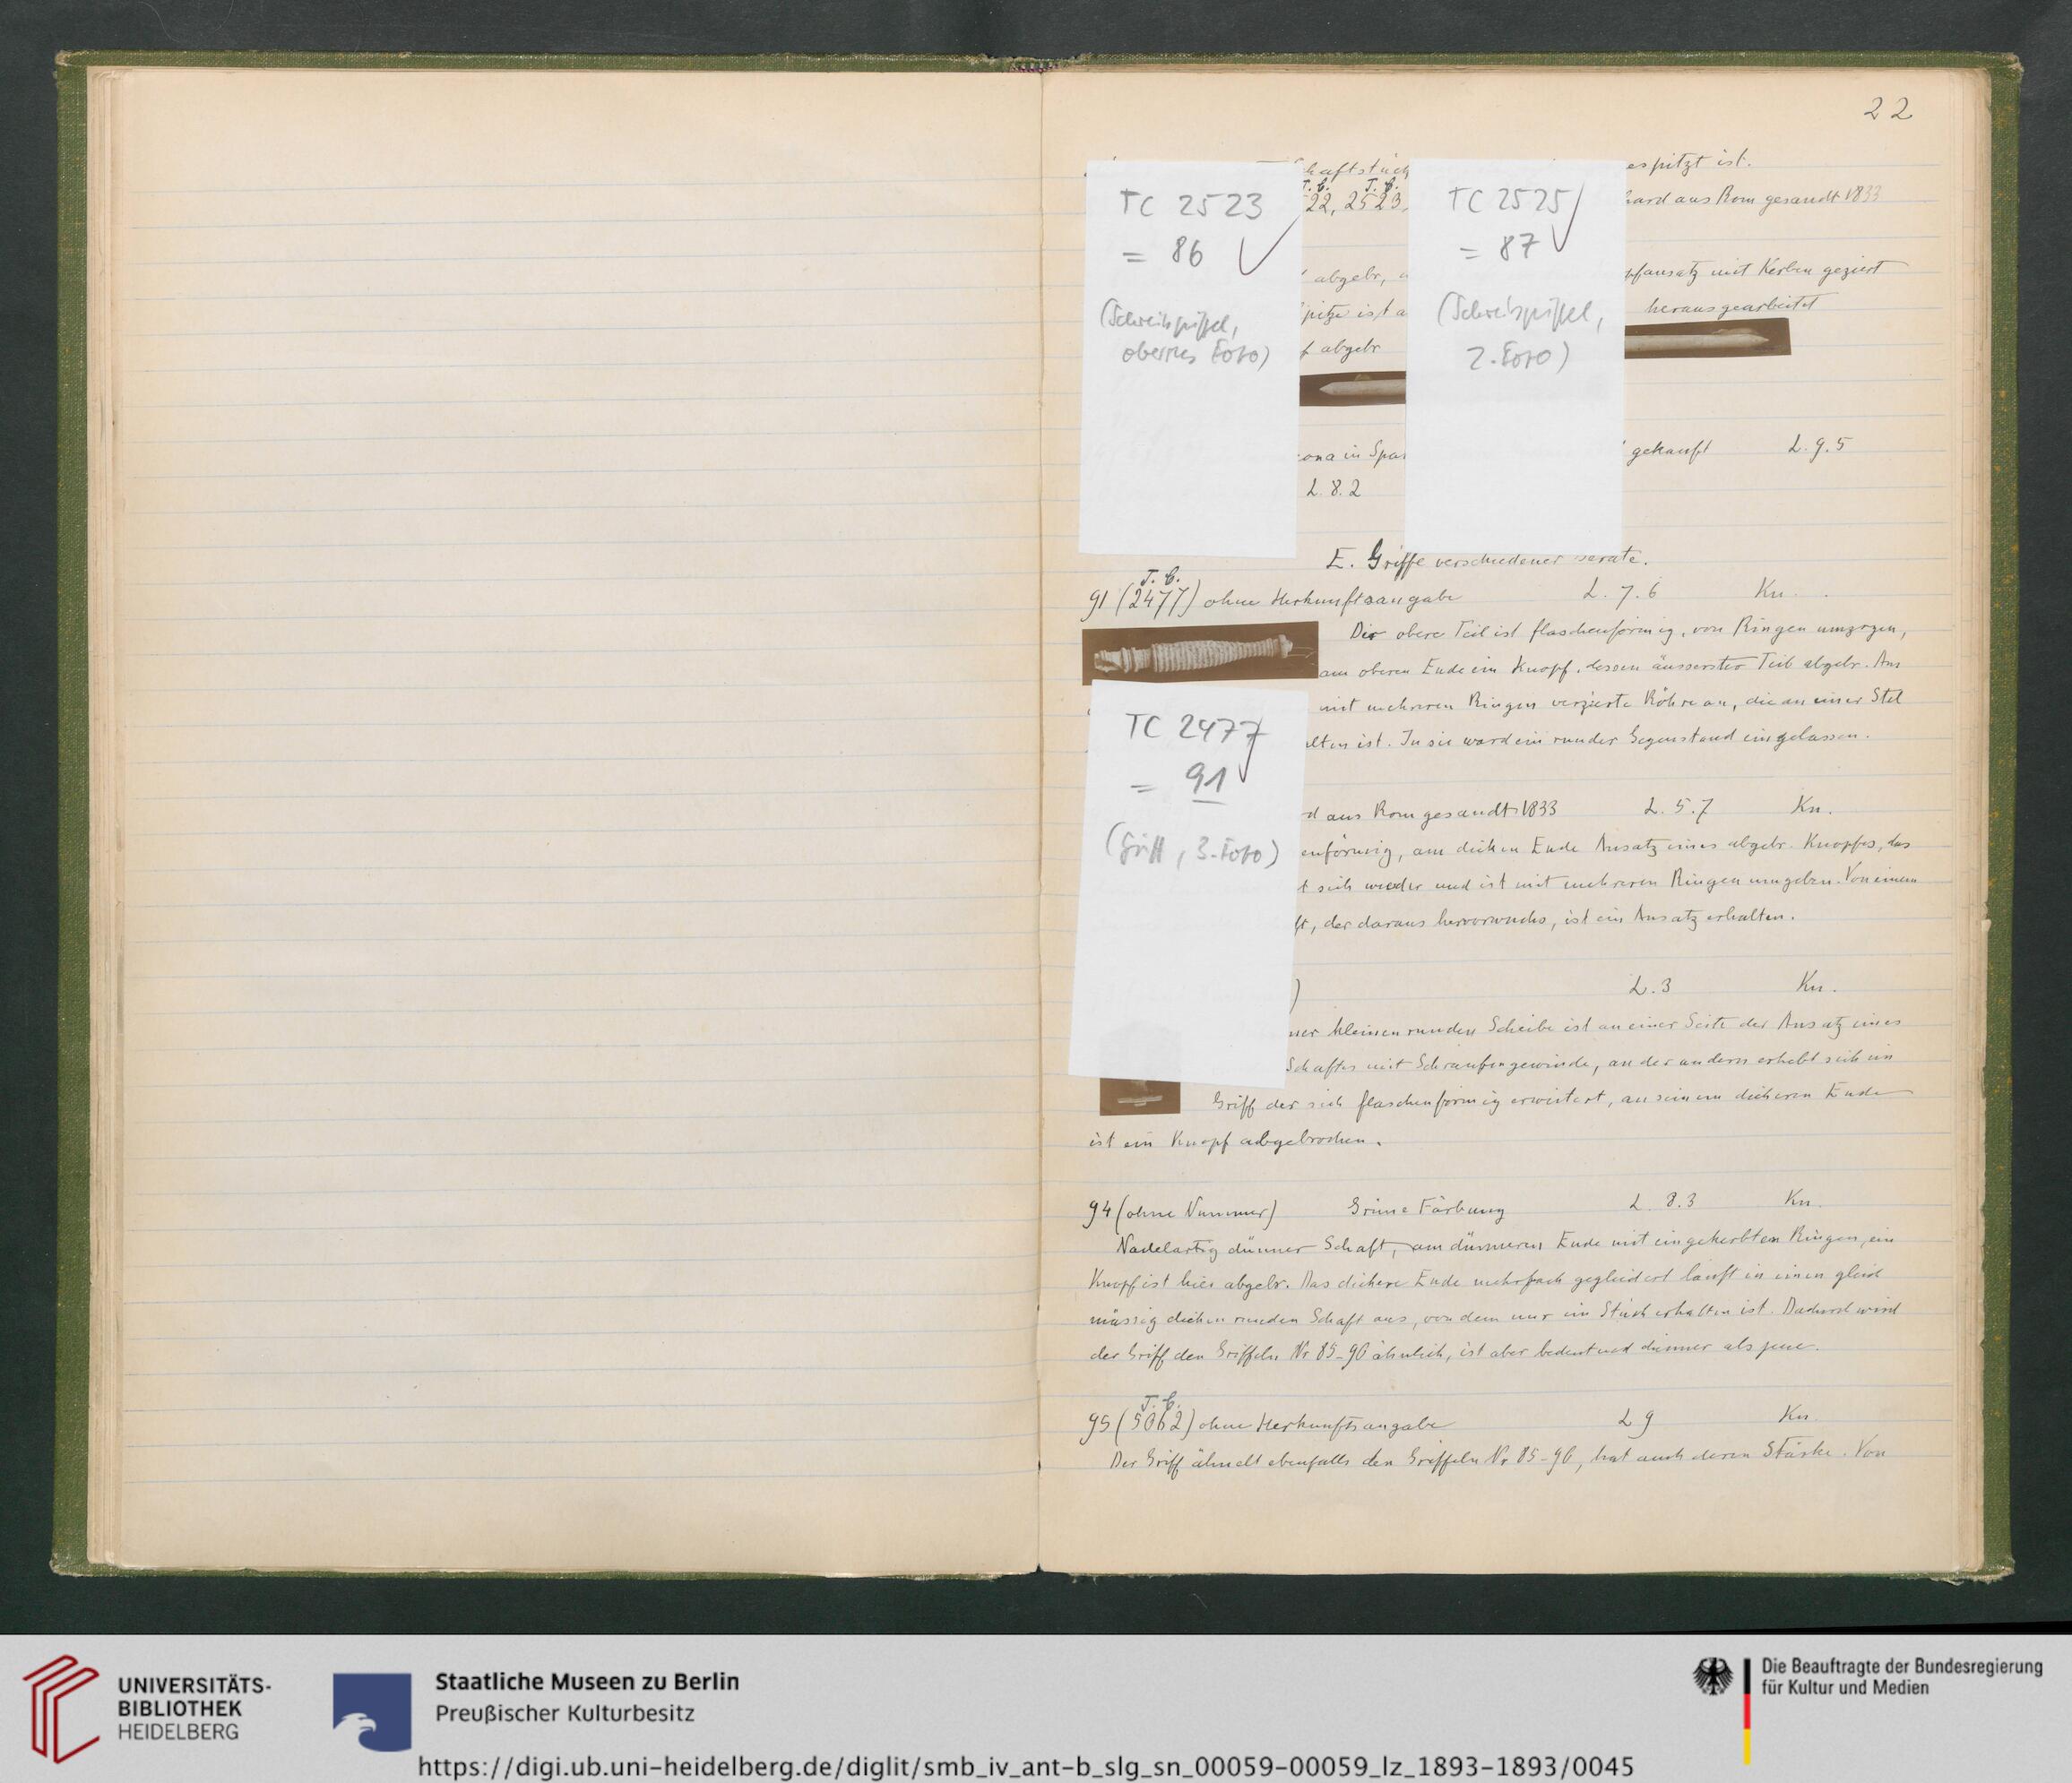 22
espitzt ist.
T. C. T. C.
22, 2523,
hard aus Rom gesandt 1833
abgebr,
pfansatz mit Kerben geziert
pitze ist a
herausgearbeitet
f abgebr
ona in Spa
gekauft L. 9.5
L. 8.2
TC 2523
= 86
(Schreibgriffel,
oberes Foto)
TC 2525
= 87
(Schreibgriffel,
2. Foto)
E. Griffe verschiedener Geräte.
T. C.
91 (2477) ohne Herkunftsangabe L. 7.6 Kn.
Der obere Teil ist flaschenförmig, von Ringen umzogen,
am oberen Ende ein Knopf, dessen äusserster Teil abgebr. Aus
mit mehreren Ringen verzierte Röhre an, die an einer Stel
alten ist. In sie ward ein runder Gegenstand eingelassen.
TC 2477
= 91
(Griff, 3. Foto)
d aus Rom gesandt 1833 L. 5.7 Kn.
enförmig, am dicken Ende Ansatz eines abgebr. Knopfes, das
t sich wieder und ist mit mehreren Ringen umgeben. Von einem
ft, der daraus hervorwuchs, ist ein Ansatz erhalten.
) L. 3 Kn.
ner kleinen runden Scheibe ist an einer Seite der Ansatz eines
Schaftes mit Schraubengewinde, an der andern erhebt sich ein
Griff der sich flaschenförmig erweitert, an seinem dickeren Ende
ist ein Knopf abgebrochen.
94 (ohne Nummer) Grüne Färbung L. 8.3 Kn.
Nadelartig dünner Schaft, am dünneren Ende mit eingekerbten Ringen, ein
Knopf ist hier abgebr. Das dickere Ende mehrfach gegliedert läuft in einen gleich
mässig dicken runden Schaft aus, von dem nur ein Stück erhalten ist. Dadurch wird
der Griff den Griffeln Nr 85-90 ähnlich, ist aber bedeutend dünner als jene.
T. C.
95 (5062) ohne Herkunftsangabe L 9 Kn.
Der Griff ähnelt ebenfalls den Griffeln Nr 85-90, hat auch deren Stärke. Von
UNIVERSITÄTS-
BIBLIOTHEK
HEIDELBERG
Staatliche Museen zu Berlin
Preußischer Kulturbesitz
Die Beauftragte der Bundesregierung
für Kultur und Medien
https://digi.ub.uni-heidelberg.de/diglit/smb_iv_ant-b_slg_sn_00059-00059_lz_1893-1893/0045